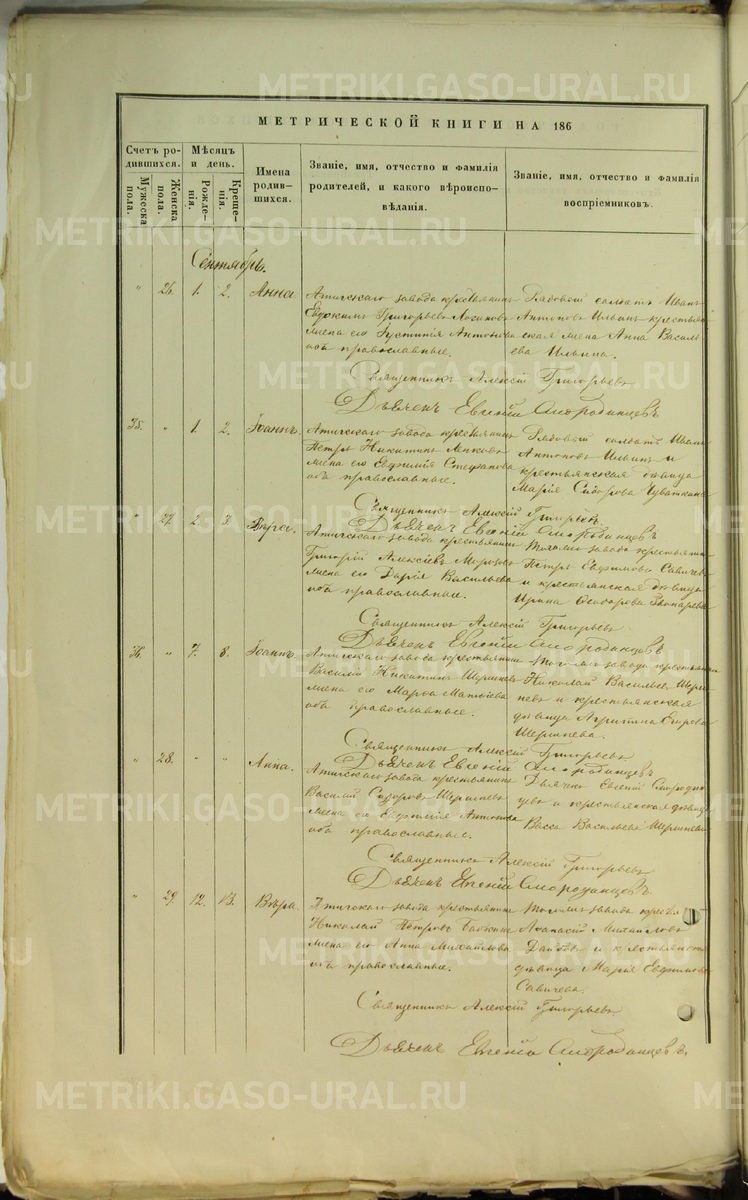 METRIKI.GASO-URAL.RU
МЕТРИЧЕСКОЙ КНИГИ НА 186
Счетъ ро-
дившихся.
Мужеска
пола.
Женска
пола.
Мѣсяцъ
и день.
Рожде-
нія.
Креще-
нія.
Имена
родив-
шихся.
Званіе, имя, отчество и фамилія
родителей, и какого вѣроиспо-
вѣданія.
Званіе, имя, отчество и фамилія
воспріемниковъ.
Сентябрь.
" 26. 1. 2. Анна
Атигскаго завода крестьянинъ
Евдокимъ Григорьевъ
жена его Іустинія Антонова
оба православные.
Рядовой солдатъ Иванъ
Антоновъ Ильинъ
ская жена Анна Василь
ева Ильина.
Священникъ Алексій Григорьевъ
Дьяченъ Евгеній Смородинцевъ
35. " 1. 2. Іоаннъ.
Атигскаго завода крестьянинъ
Петръ Никитинъ
жена его Евфимія Стефанова
оба православные.
Рядовой солдатъ Иванъ
Антоновъ Ильинъ и
крестьянская дѣвица
Марія Сидорова
Священникъ Алексій Григорьевъ.
Дьяченъ Евгеній Смородинцевъ
" 27. 2. 3. Вѣра.
Атигскаго завода крестьянинъ
Григорій Алексіевъ
жена его Дарія Васильева
оба православные.
Тогожъ завода крестьянинъ
Петръ Евфимовъ Савичевъ
и крестьянская дѣвица
Ирина Ѳеодорова
Священникъ Алексій Григорьевъ
Дьяченъ Евгеній Смородинцевъ
36. " 7. 8. Іоаннъ.
Атигскаго завода крестьянинъ
Василій Никитинъ
жена его Марѳа Матѳіева
оба православные.
Тогожъ завода крестьянинъ
Николай Васильевъ
и крестьянская
дѣвица Егорова
Священникъ Алексій Григорьевъ
Дьяченъ Евгеній Смородинцевъ
" 28. " " Анна.
Атигскаго завода крестьянинъ
Василій Сидоровъ
жена его Евфимія Антонова
оба православные.
Дьяченъ Евгеній Смородин
цевъ и крестьянская дѣвица
Васса Васильева
Священникъ Алексій Григорьевъ
Дьяченъ Евгеній Смородинцевъ.
" 29. 12. 13. Вѣра.
Атигскаго завода крестьянинъ
Николай Петровъ
жена его Анна Михайлова
оба православные.
Тогожъ завода
Аѳанасій Михайловъ
и
дѣвица Марія Евфимова
Савичева.
Священникъ Алексій Григорьевъ
Дьяченъ Евгеній Смородинцевъ.